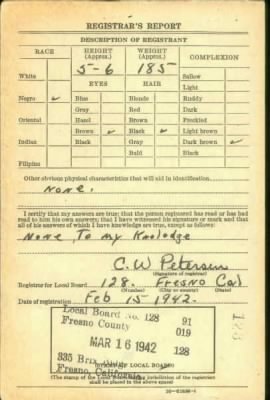 REGISTRAR'S REPORT
DESCRIPTION OF REGISTRANT
RACE HEIGHT (Approx.) WEIGHT (Approx.) COMPLEXION
5-6 185
White Sallow
EYES HAIR Light
Negro ✓ Blue Blonde Ruddy
Gray Red Dark
Oriental Hazel Brown Freckled
Brown ✓ Black ✓ Light brown
Indian Black Gray Dark brown ✓
Bald Black
Filipino
Other obvious physical characteristics that will aid in identification
None.
I certify that my answers are true; that the person registered has read or has had
read to him his own answers; that I have witnessed his signature or mark and that
all of his answers of which I have knowledge are true, except as follows:
None To my Knolodge
C. W. Petersen
(Signature of registrar)
Registrar for Local Board 128. Fresno Cal
(Number) (City or county) (State)
Date of registration Feb 15 1942.
Local Board No. 128 91
Fresno County 019
MAR 16 1942 128
335 Brix
Fresno, California
(STAMP OF LOCAL BOARD)
(The stamp of the Local Board having jurisdiction of the registrant
shall be placed in the above space)
128